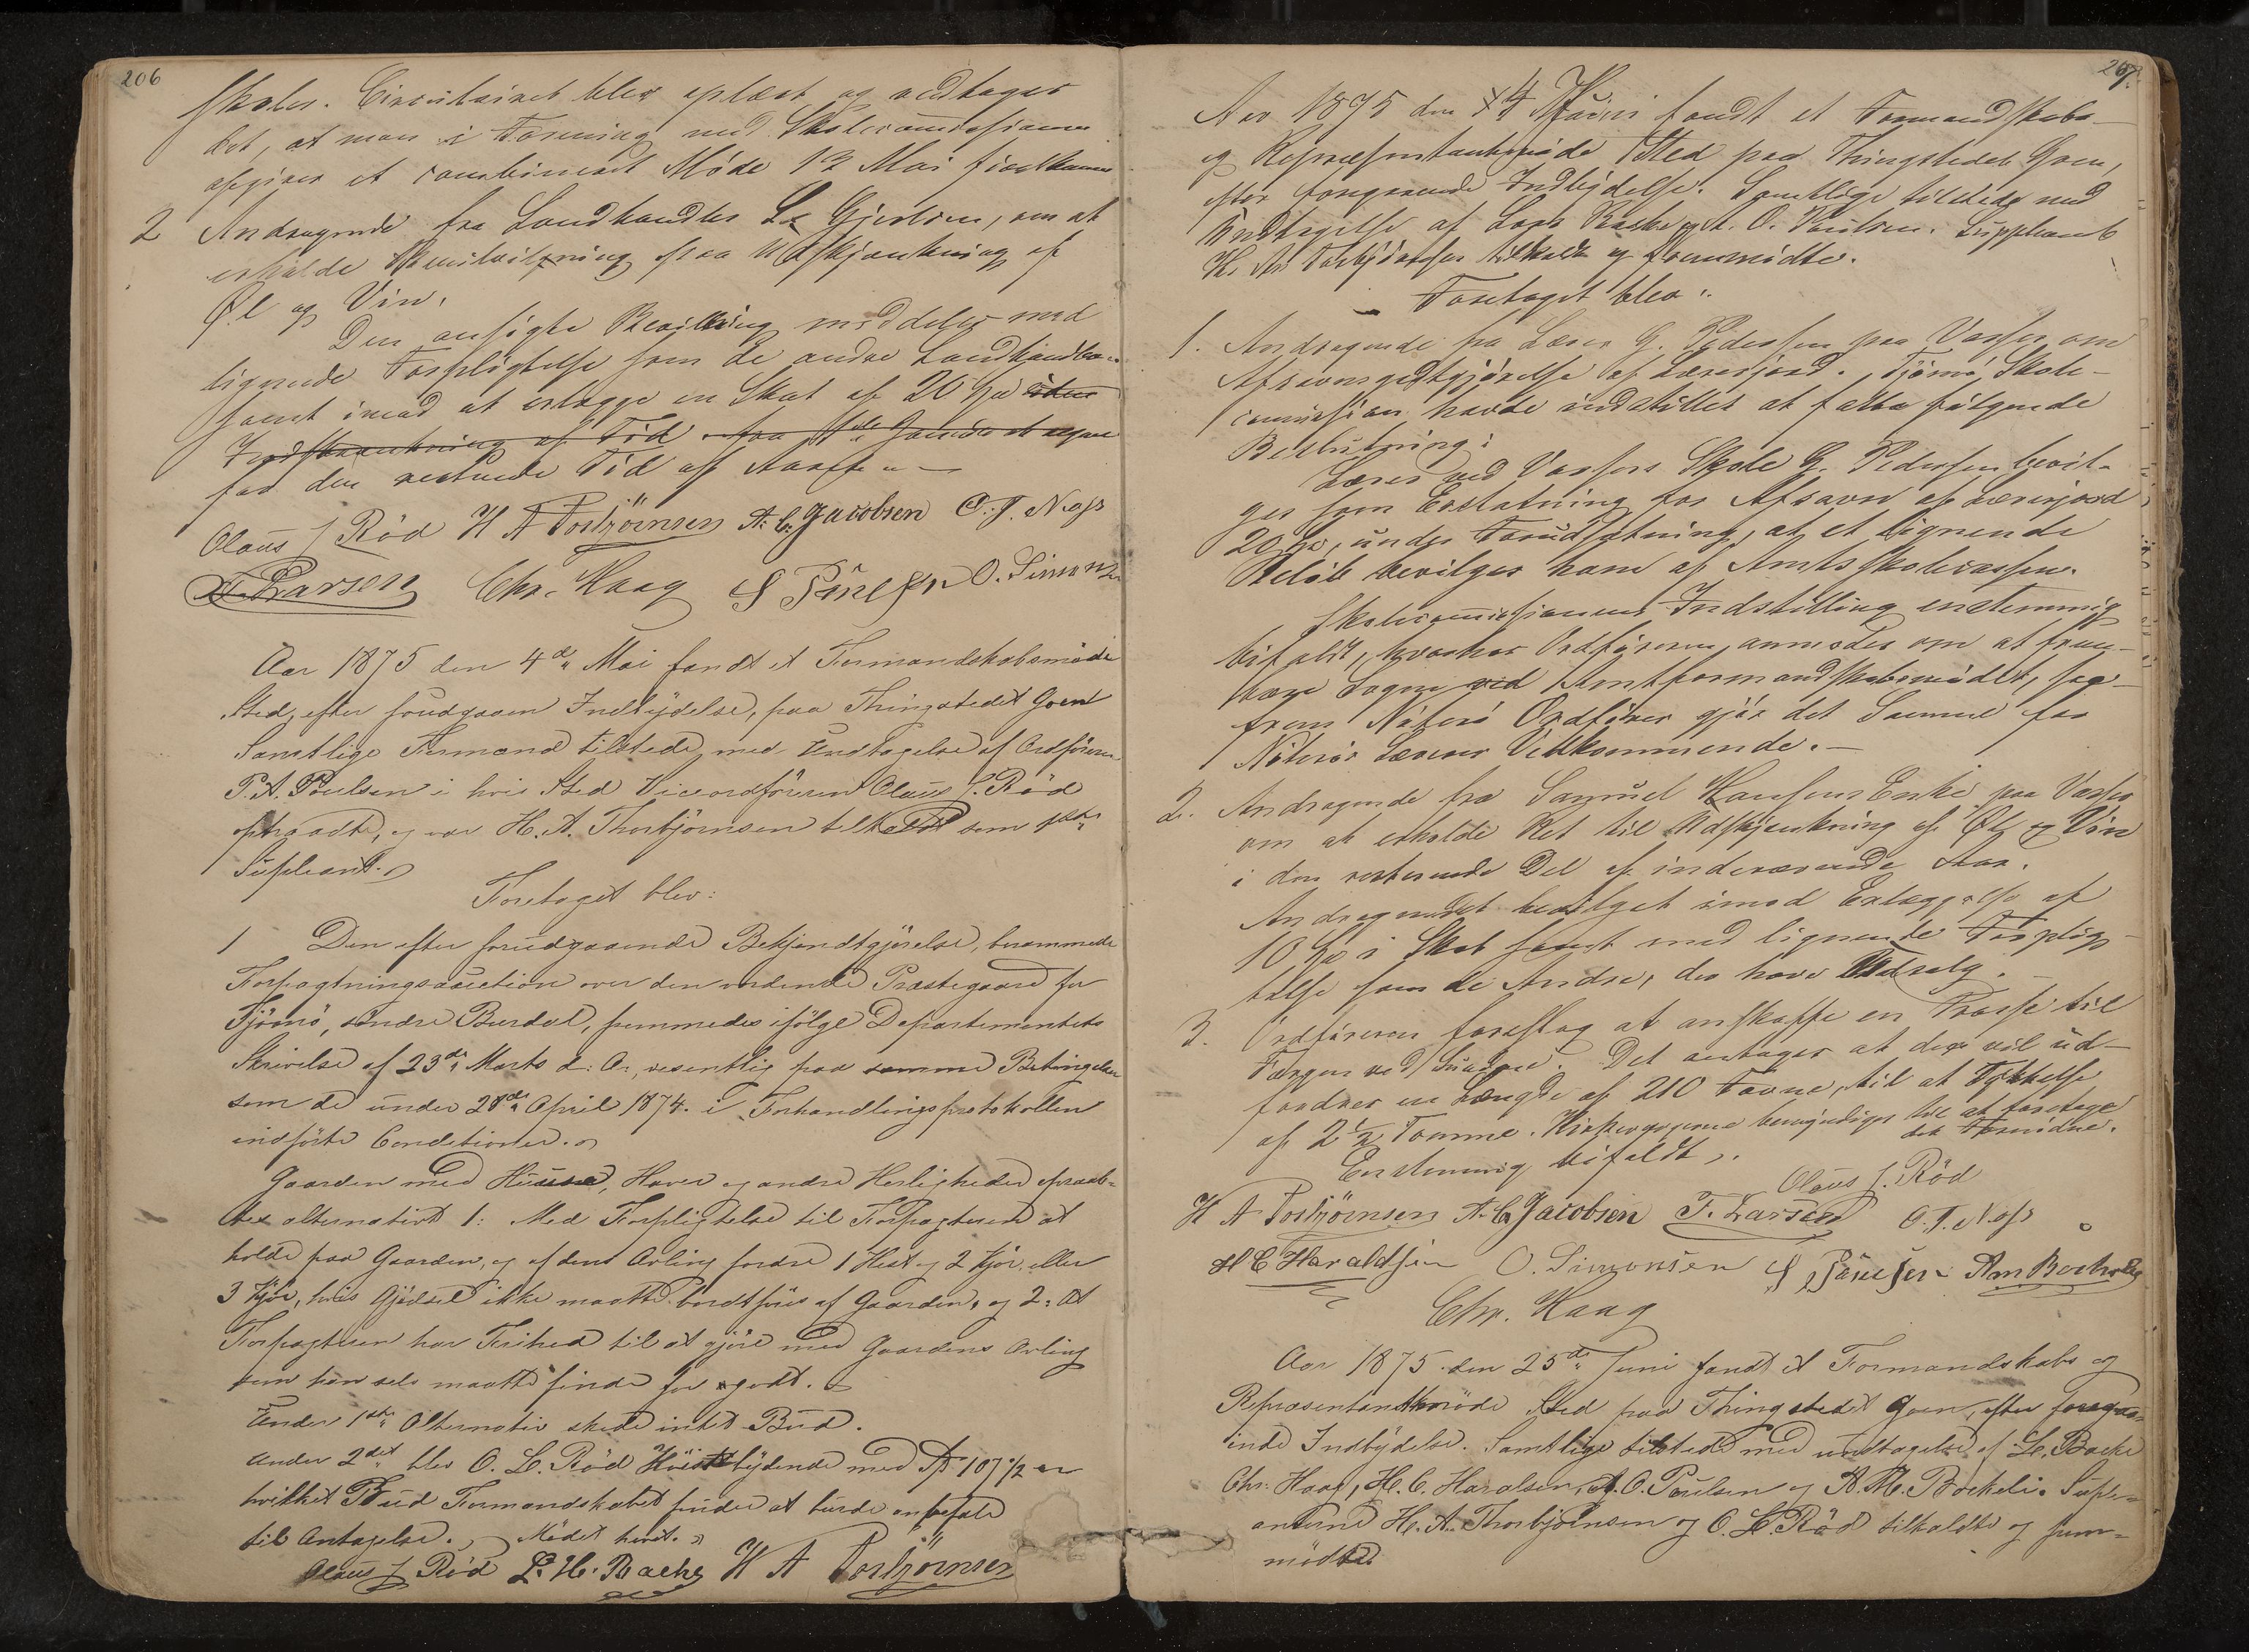 206
Skoler. Circulairet blev oplæst og vedtoges
det, at man i Forening med Skolecommissionen
afgiver et combineret Møde 13 Mai
2 Andragende fra Landhandler L. Gjertsen, om at
erholde Bevilgning paa Udskjænkning af
Øl og Vin.
Den ansøgte Bevilling meddeles med
lignende Forpligtelse som de andre Landhandlere
samt imod at erlægge en Skat af 20
Indskrænkning af Tid
for den resterende Tid af Aaret. —
Olaus J Rød H A Torbjørnsen A. C. Jacobsen O. T. Næss
F. Larsen Chr. Haag S Poulsen O. Simonsen
Aar 1875 den 4de Mai fandt et Formandskabsmøde
Sted, efter forudgaaen Indbydelse, paa Thingstedet Goen
Samtlige Formænd tilstede med Undtagelse af Ordføreren
P. A. Poulsen i hvis Sted Viceordføreren Olaus J. Rød
optraadte, og var H. A. Thorbjørnsen tilkaldt som 1ste
Supleant.
Foretaget blev:
1 Den efter forudgaaende Bekjendtgjørelse, berammede
Forpagtningsauction over den vordende Præstegaard for
Tjømø, søndre Burdal, fremmedes ifølge Departementets
Skrivelse af 23de Marts d. A., væsentlig paa samme Betingelser
som de under 28de April 1874. i Forhandlingsprotokollen
indførte Conditioner.
Gaarden med Huuse, Haver og andre Herligheder opraab-
tes alternativt 1: Med Forpligtelse til Forpagteren at
holde paa Gaarden, og af dens Avling fordre 1 Hest og 2 Kjør, eller
3 Kjør, hvis Gjødsel ikke maatte bordtføres af Gaarden, og 2: At
Forpagteren har Frihed til at gjøre med Gaardens Avling
som han selv maatte finde for godt.
Under 1ste Alternativ skede intet Bud.
Under 2det blev O. L. Rød Høistbydende med Sp 107 1/2
hvilket Bud Formandskabet finder at burde anbefale
til Antagelse. Mødet hævet.
Olaus J Rød L. H. Bache H A Torbjørnsen
207.
Aar 1875 den 4 Juni fandt et Formandskabs-
og Repræsentantmøde Sted paa Thingstedet Goen,
efter foregaaende Indbydelse. Samtlige tilstede med
Undtagelse af Lars Bache og A. O. Poulsen. Suppleant
H. A. Torbjørnsen tilkaldt og fremmødte.
Foretaget blev:
1. Andragende fra Lærer G. Pedersen paa Vasser om
Afsavnsgodtgjørelse af Lærerjord. Tjømø Skole-
commission havde indstillet at fatte følgende
Beslutning:
Lærer ved Vassers Skole G. Pedersen bevil-
ges som Erstatning for Afsavn af Lærerjord
20, under Forudsætning, at et lignende
Beløb bevilges ham af Amtsskolecassen.
Skolecommissionens Indstilling enstemmig
bifaldt, hvorhos Ordføreren anmodes om at frem-
bære Sagen ved Amtformandskabsmødet, saa-
fremt Nøterø Ordfører gjør det Samme for
Nøterøs Læreres Vedkommende. —
2. Andragende fra Samuel Hansens Enke paa Vasser
om at erholde Ret til Udskjænkning af Øl og Vin
i den resterende Del af indeværende Aar.
Andragendet bevilget imod Erlæggelse af
10 i Skat samt med lignende Forplig-
telse som de Andre, der have Udsalg. —
3. Ordføreren foreslog at anskaffe en Trosse til
Færgen ved Sundene. Det antages at der vil ud-
fordres en Længde af 210 Favne, til at Tykkelse
af 2 1/2 Tomme. bemyndiges til at foretage
det Fornødne.
Enstemmig bifaldt.
Olaus J. Rød
H A Torbjørnsen A. C. Jacobsen F. Larsen O. T. Næss
H C Haraldsen O. Simonsen S Poulsen Am Bockelie
Chr. Haag
Aar 1875 den 25de Juni fandt et Formandskabs og
Repræsentantmøde Sted paa Thingstedet Goen, efter foregaa-
ende Indbydelse. Samtlige tilstede med undtagelse af L. Bache
Chr. Haag, H. C. Haralsen, A. O. Poulsen og A. M. Bockeli. Suple-
anterne H. A. Thorbjørnsen og O. L. Rød tilkaldte og frem-
mødte